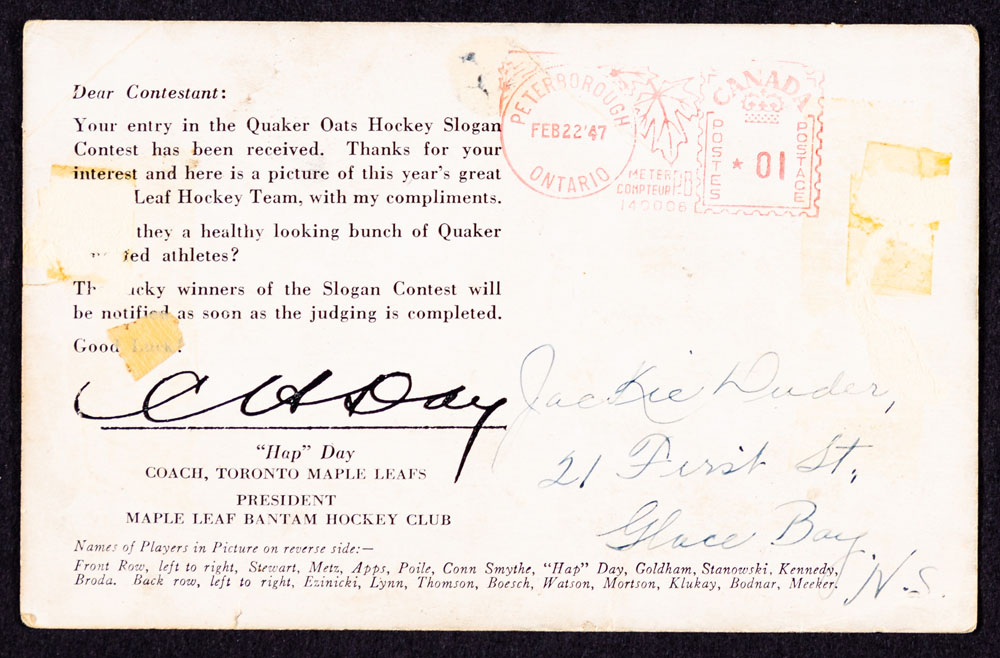 Dear Contestant:
Your entry in the Quaker Oats Hockey Slogan
Contest has been received. Thanks for your
interest and here is a picture of this year's great
Leaf Hockey Team, with my compliments.
they a healthy looking bunch of Quaker
athletes?
winners of the Slogan Contest will
be notified as soon as the judging is completed.
Good Luck!
C H Day
"Hap" Day
COACH, TORONTO MAPLE LEAFS
PRESIDENT
MAPLE LEAF BANTAM HOCKEY CLUB
Names of Players in Picture on reverse side:—
Front Row, left to right, Stewart, Metz, Apps, Poile, Conn Smythe, "Hap" Day, Goldham, Stanowski, Kennedy,
Broda. Back row, left to right, Ezinicki, Lynn, Thomson, Boesch, Watson, Mortson, Klukay, Bodnar, Meeker.
PETERBOROUGH
FEB 22 '47
ONTARIO
METER
COMPTEUR
140006
CANADA
POSTES
* 01
POSTAGE
Jackie Duder,
21 First St.,
Glace Bay,
N.S.